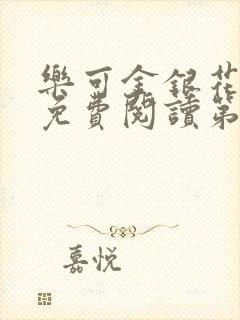 樂可金銀花
免費閱讀第
嘉悅